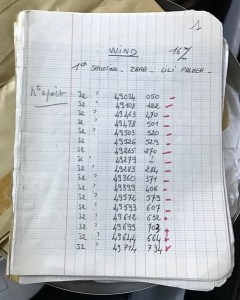 1
WIND 16%
1er SHOOTING _ ZARA _ LILI PALMER _
32 ° 49034 050 _
32 ° 49108 122 _
32 ° 49463 470 _
32 ° 49478 501 _
32 ° 49503 520 _
32 ° 49526 529 _
32 ° 49265 270 _
32 ° 49279 _
32 ° 49283 284 _
32 ° 49360 371 _
32 ° 49399 406 _
32 ° 49572 579 _
32 ° 49593 607 _
32 ° 49612 632
32 ° 49699 703
32 ° 49644 664
32 ° 49714 734